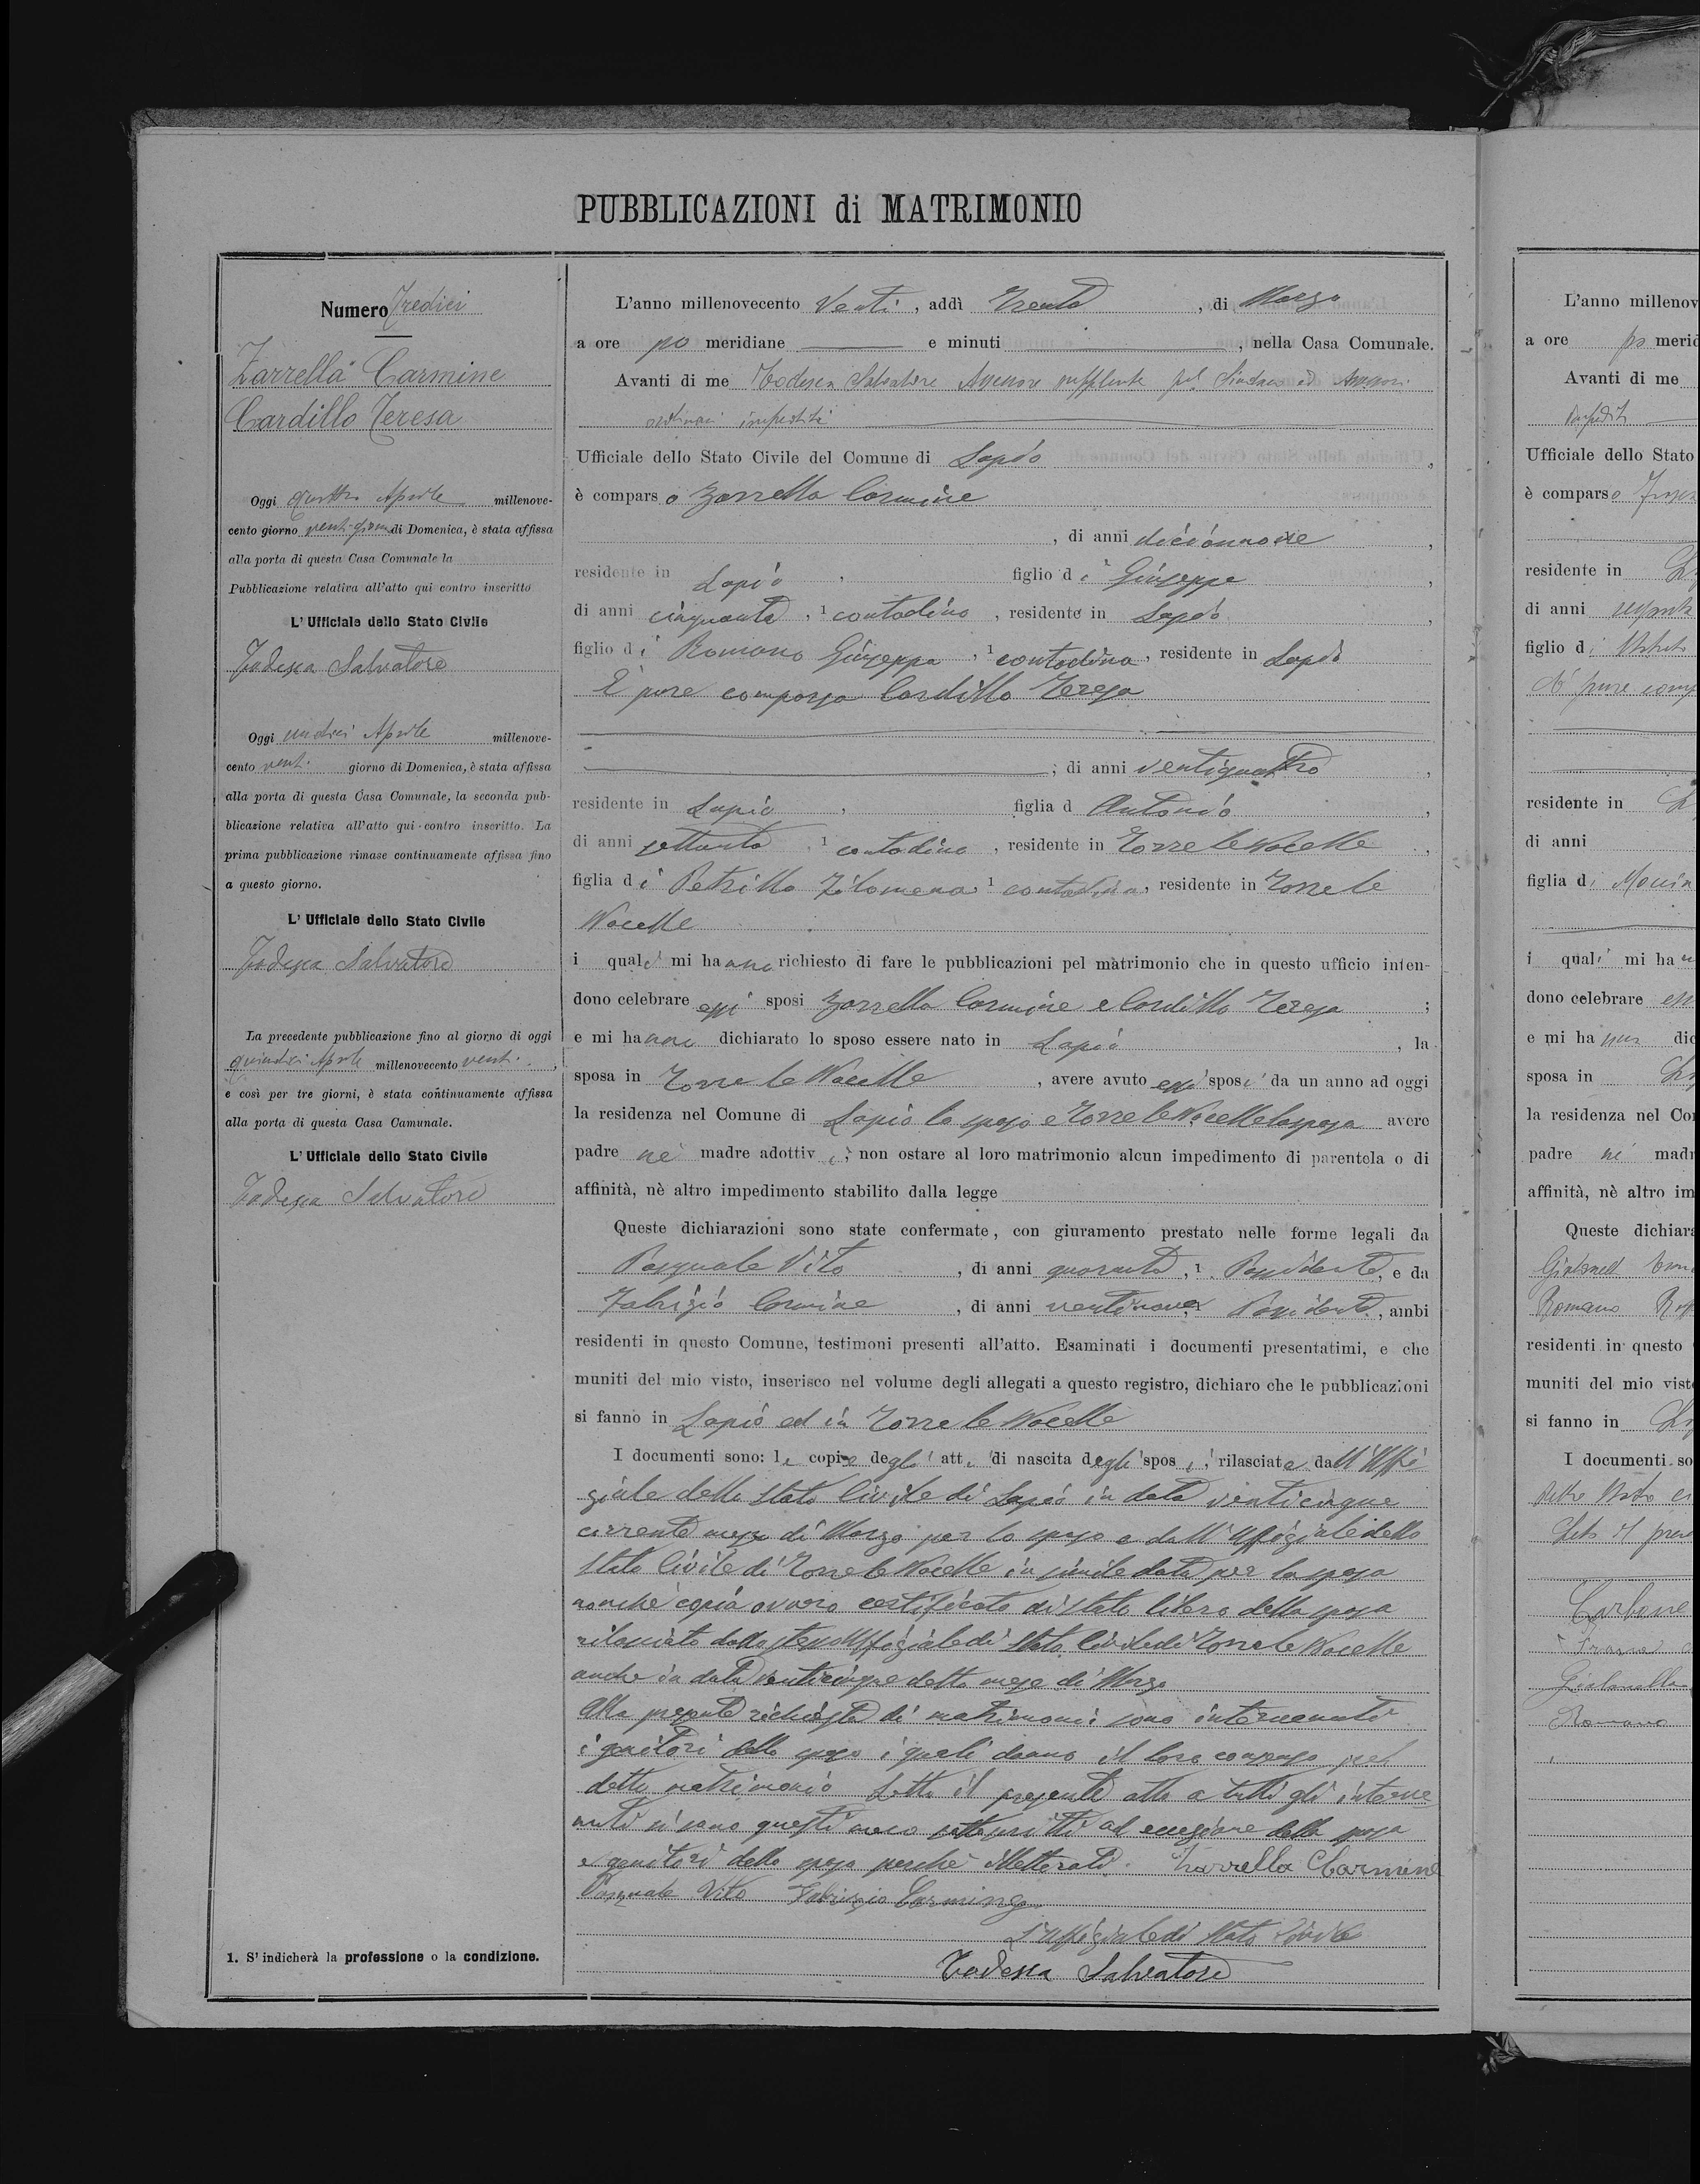 PUBBLICAZIONI di MATRIMONIO
Numero Tredici
Zarrella Carmine
Cardillo Teresa
Oggi quattro Aprile millenove-
cento giorno venti giorno di Domenica, è stata affissa
alla porta di questa Casa Comunale la
Pubblicazione relativa all'atto qui contro inscritto
L'Ufficiale dello Stato Civile
Todesca Salvatore
Oggi undici Aprile millenove-
cento venti giorno di Domenica, è stata affissa
alla porta di questa Casa Comunale, la seconda pub-
blicazione relativa all'atto qui contro inscritto. La
prima pubblicazione rimase continuamente affissa fino
a questo giorno.
L'Ufficiale dello Stato Civile
Todesca Salvatore
La precedente pubblicazione fino al giorno di oggi
quindici Aprile millenovecento venti.
e così per tre giorni, è stata continuamente affissa
alla porta di questa Casa Camunale.
L'Ufficiale dello Stato Civile
Todesca Salvatore
1. S'indicherà la professione o la condizione.
L'anno millenovecento Venti, addì Trenta, di Marzo
a ore po meridiane e minuti , nella Casa Comunale.
Avanti di me Todesca Salvatore Assessore supplente pel Sindaco ed Assessori
ordinari impediti
Ufficiale dello Stato Civile del Comune di Lapio,
è comparso Zarrella Carmine
, di anni diciannove,
residente in Lapio, figlio di Giuseppe,
di anni cinquanta, 1 contadino, residente in Lapio,
figlio di Romano Giuseppa, 1 contadina, residente in Lapio
E' pure comparsa Cardillo Teresa
; di anni ventiquattro,
residente in Lapio, figlia d Antonio,
di anni settanta, 1 contadino, residente in Torre le Nocelle,
figlia di Petrillo Filomena 1 contadina, residente in Torre le
Nocelle
i quali mi hanno richiesto di fare le pubblicazioni pel matrimonio che in questo ufficio inten-
dono celebrare essi sposi Zarrella Carmine e Cardillo Teresa;
e mi hanno dichiarato lo sposo essere nato in Lapio, la
sposa in Torre le Nocelle, avere avuto essi sposi da un anno ad oggi
la residenza nel Comune di Lapio lo sposo e Torre le Nocelle la sposa avere
padre nè madre adottivi; non ostare al loro matrimonio alcun impedimento di parentela o di
affinità, nè altro impedimento stabilito dalla legge
Queste dichiarazioni sono state confermate, con giuramento prestato nelle forme legali da
Pasquale Vito, di anni quaranta, 1 Possidente, e da
Fabrizio Carmine, di anni ventinove, Possidente, ambi
residenti in questo Comune, testimoni presenti all'atto. Esaminati i documenti presentatimi, e che
muniti del mio visto, inserisco nel volume degli allegati a questo registro, dichiaro che le pubblicazioni
si fanno in Lapio ed in Torre le Nocelle
I documenti sono: le copie degli atti di nascita degli sposi, rilasciate dall'Uffi
ziale dello Stato Civile di Lapio in data venticinque
corrente mese di Marzo per lo sposo e dall'Uffiziale dello
Stato Civile di Torre le Nocelle in simile data per la sposa
nonchè copia ovvero certificato di stato libero della sposa
rilasciato dallo stesso Uffiziale di Stato Civile di Torre le Nocelle
anche in data venticinque detto mese di Marzo
Alla presente richiesta di matrimonio sono intervenuti
i genitori dello sposo i quali danno il loro consenso pel
detto matrimonio Letto il presente atto a tutti gli interve
nuti si sono questi meco sottoscritti ad eccezione della sposa
e genitori dello sposo perchè illetterati. Zarrella Carmine
Pasquale Vito Fabrizio Carmine
L'Uffiziale di Stato Civile
Todesca Salvatore
L'anno millenov
a ore po merid
Avanti di me
Ufficiale dello Stato
è comparso
residente in
di anni
figlio di
E' pure comp
residente in
di anni
figlia di
i quali mi ha
dono celebrare
e mi ha dic
sposa in
la residenza nel Co
padre nè madr
affinità, nè altro im
Queste dichiara
Romano
residenti in questo
muniti del mio visto
si fanno in
I documenti so
Carbone
Romano